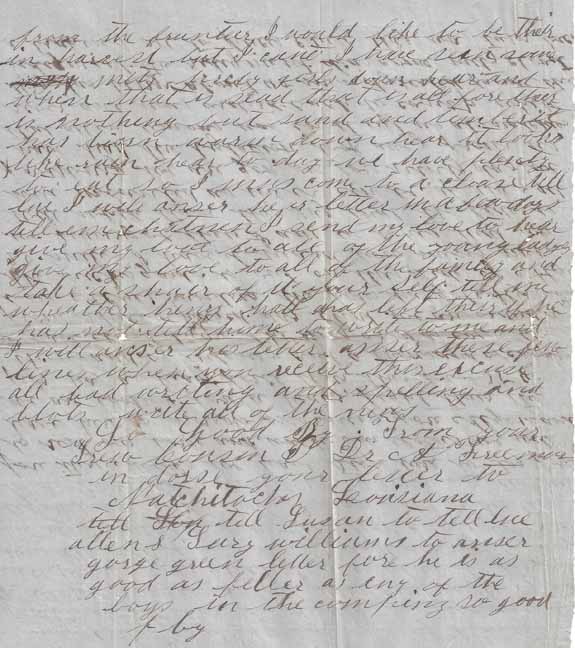 from the fruntier I would like to be their
in parcist but I cant I have seen som
mity prety girls down hear and
when that is sead that is all fore thar
is nothing but sand and timber it
has bin warm down hear it looks
like rain hear to day we have plenty
to eat so I mus com to a close till
I will anser her letter
tell em I send my love to hear
give my love to all of the young ladys
give my love to all of the family and
take a shear of it your self tell me
wheather henry hall has left their if he
has not tell hime to write to me and
I will anser his letter anser these few
lines when you receive this excuse
all bad writing and spelling and
blots write all of the news
So Good By From your
Trew Cousin Dr A Freeman
in dorse your letter to
Natchitoches Leonisiana
till tell Susan to tell
allen & Sury williams to anser
gorge green letter fore he is as
good as feller as eny of the
boys in the compiny so good
by